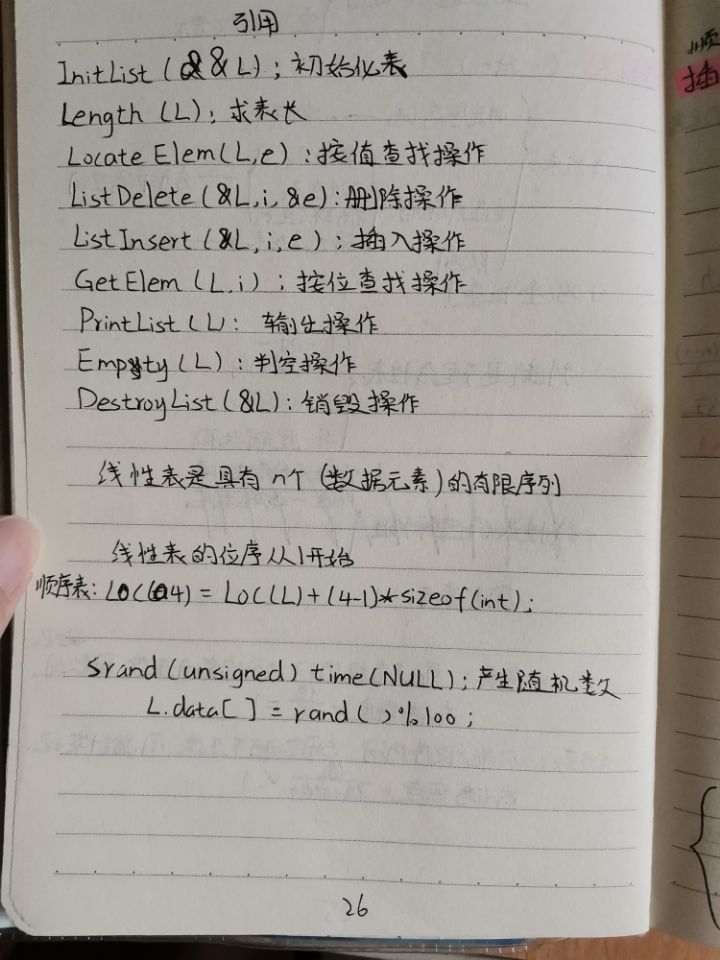 引用
InitList (&L) ; 初始化表
Length (L) ; 求表长
LocateElem(L,e) : 按值查找操作
ListDelete(&L,i,&e) : 删除操作
ListInsert(&L,i,e) ; 插入操作
GetElem (L,i) ; 按位查找操作
PrintList(L) : 输出操作
Empty(L) : 判空操作
DestroyList(&L) : 销毁操作
线性表是具有n个(数据元素)的有限序列
线性表的位序从1开始
顺序表: LOC(a4) = LOC(L)+(4-1)*sizeof(int);
srand(unsigned) time(NULL); 产生随机数
L.data[ ] = rand( )%100;
26
插